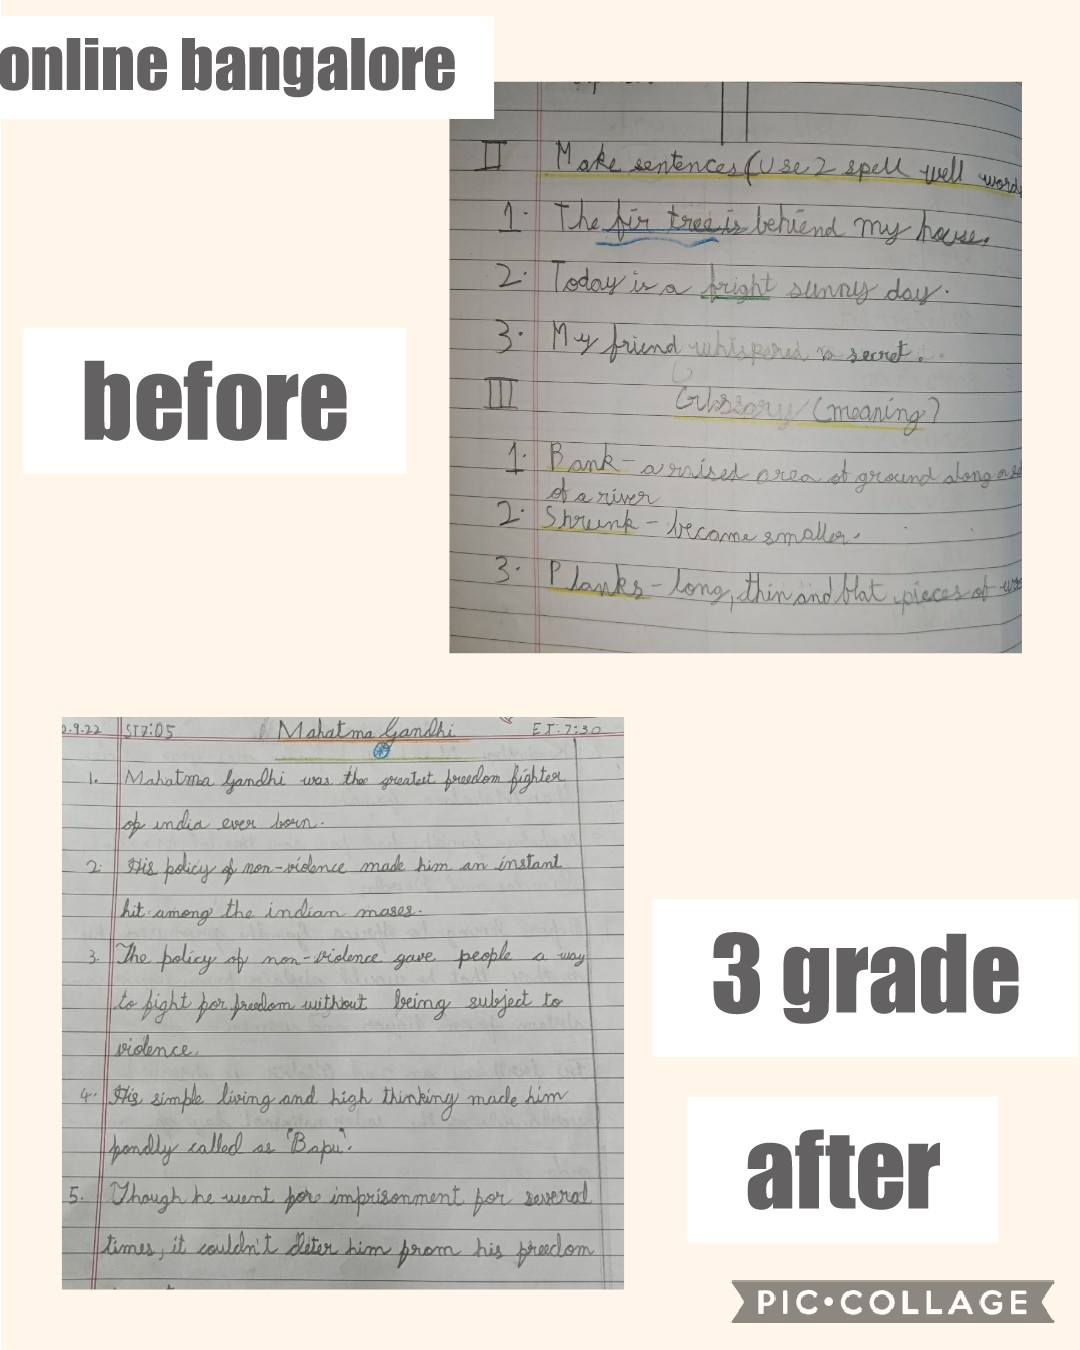 online bangalore
II Make sentences (Use 2 spell well words
1. The fir tree is behiend my house.
2. Today is a bright sunny day.
3. My friend whispered a secret.
before
III Glossory (meaning)
1. Bank - a raised area of ground along
of a river
2. Shrunk - became smaller.
3. Planks - long, thin and blat pieces of
2.9.22 ST7:05 Mahatma Gandhi ET:7:30
1. Mahatma Gandhi was the greatest freedom fighter
of india ever born.
2. His policy of non-violence made him an instant
hit among the indian mases.
3. The policy of non-violence gave people a way
to fight for freedom without being subject to
violence.
4. His simple living and high thinking made him
fondly called as "Bapu".
5. Though he went for imprisonment for several
times, it couldn't deter him from his freedom
3 grade
after
PIC•COLLAGE